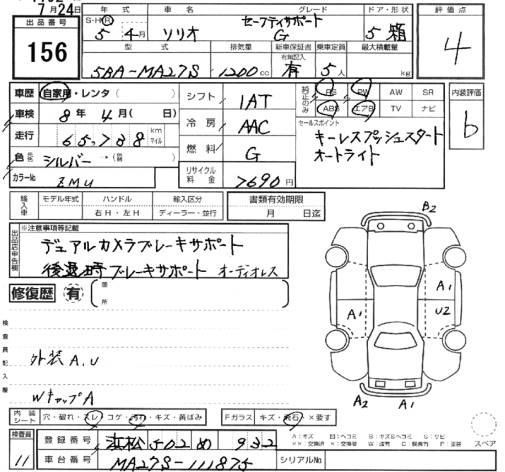 7月24日
出品番号
156
S・H・R 年式 車名 グレード ドア・形状
5 4月 ソリオ セーフティサポート G 5 箱
型式 排気量 新車保証書 乗車定員 最大積載量
有無記入
5BA-MA27S 1200cc 有 5人 kg
評価点
4
車歴 自家用・レンタ( )
車検 8年4月( 日)
走行 65,788 km マイル
色 シルバー
カラーNo. ZMU
シフト 1AT
冷房 AAC
燃料 G
リサイクル料金 7690円
純正のみ
PS PW AW SR
ABS エアB TV ナビ
セールスポイント
キーレスプッシュスタート
オートライト
内装評価
b
輸入車 モデル年式 ハンドル 輸入区分
年 右H・左H ディーラー・並行
書類有効期限
月 日迄
出品店申告欄
※注意事項等記載
デュアルカメラブレーキサポート
後退時ブレーキサポート オーディオレス
修復歴 有 箇所
検査員記入欄
外装A,U
WキャップA
B2
A1
A1
U2
A2
A1
内装シート 穴・破れ・スレ・コゲ・汚れ・キズ・黄ばみ
Fガラス キズ・飛石・×要す
検査員
11
登録番号 浜松 502 め 932
車台番号 MA27S-111875
シリアルNo.
スペア